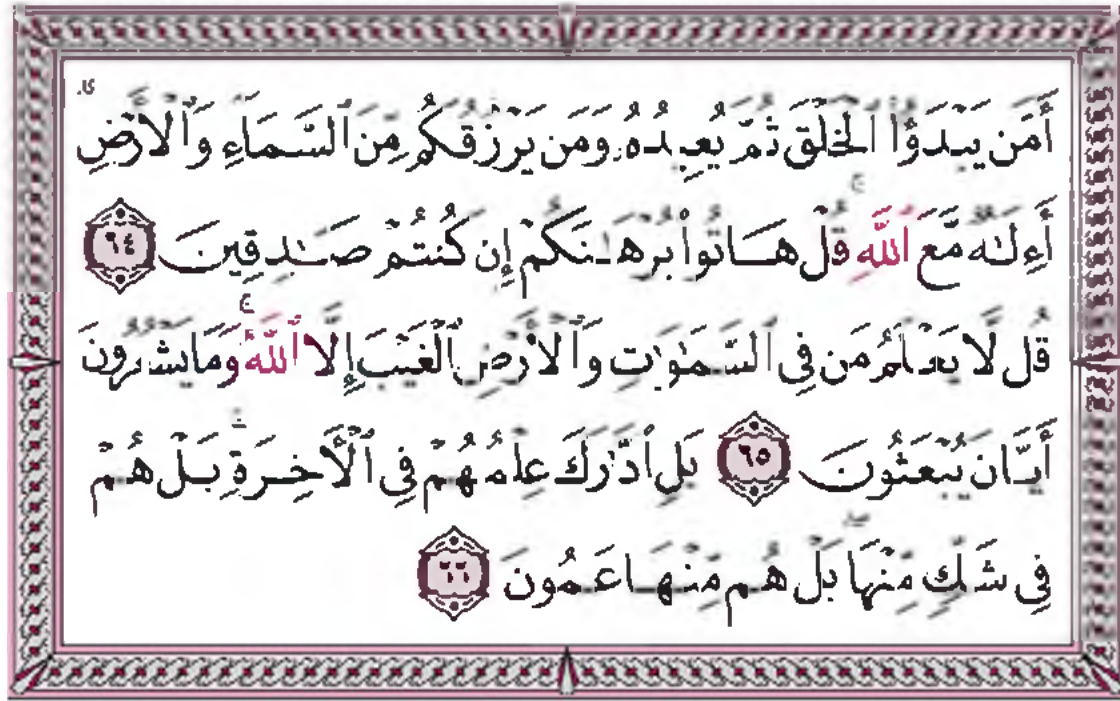 أَمَّن يَبْدَؤُا۟ ٱلْخَلْقَ ثُمَّ يُعِيدُهُۥ وَمَن يَرْزُقُكُم مِّنَ ٱلسَّمَآءِ وَٱلْأَرْضِ
أَءِلَـٰهٌ مَّعَ ٱللَّهِ ۚ قُلْ هَاتُوا۟ بُرْهَـٰنَكُمْ إِن كُنتُمْ صَـٰدِقِينَ ٦٤
قُل لَّا يَعْلَمُ مَن فِى ٱلسَّمَـٰوَٰتِ وَٱلْأَرْضِ ٱلْغَيْبَ إِلَّا ٱللَّهُ ۚ وَمَا يَشْعُرُونَ
أَيَّانَ يُبْعَثُونَ ٦٥ بَلِ ٱدَّٰرَكَ عِلْمُهُمْ فِى ٱلْـَٔاخِرَةِ ۚ بَلْ هُمْ
فِى شَكٍّ مِّنْهَا ۖ بَلْ هُم مِّنْهَا عَمُونَ ٦٦